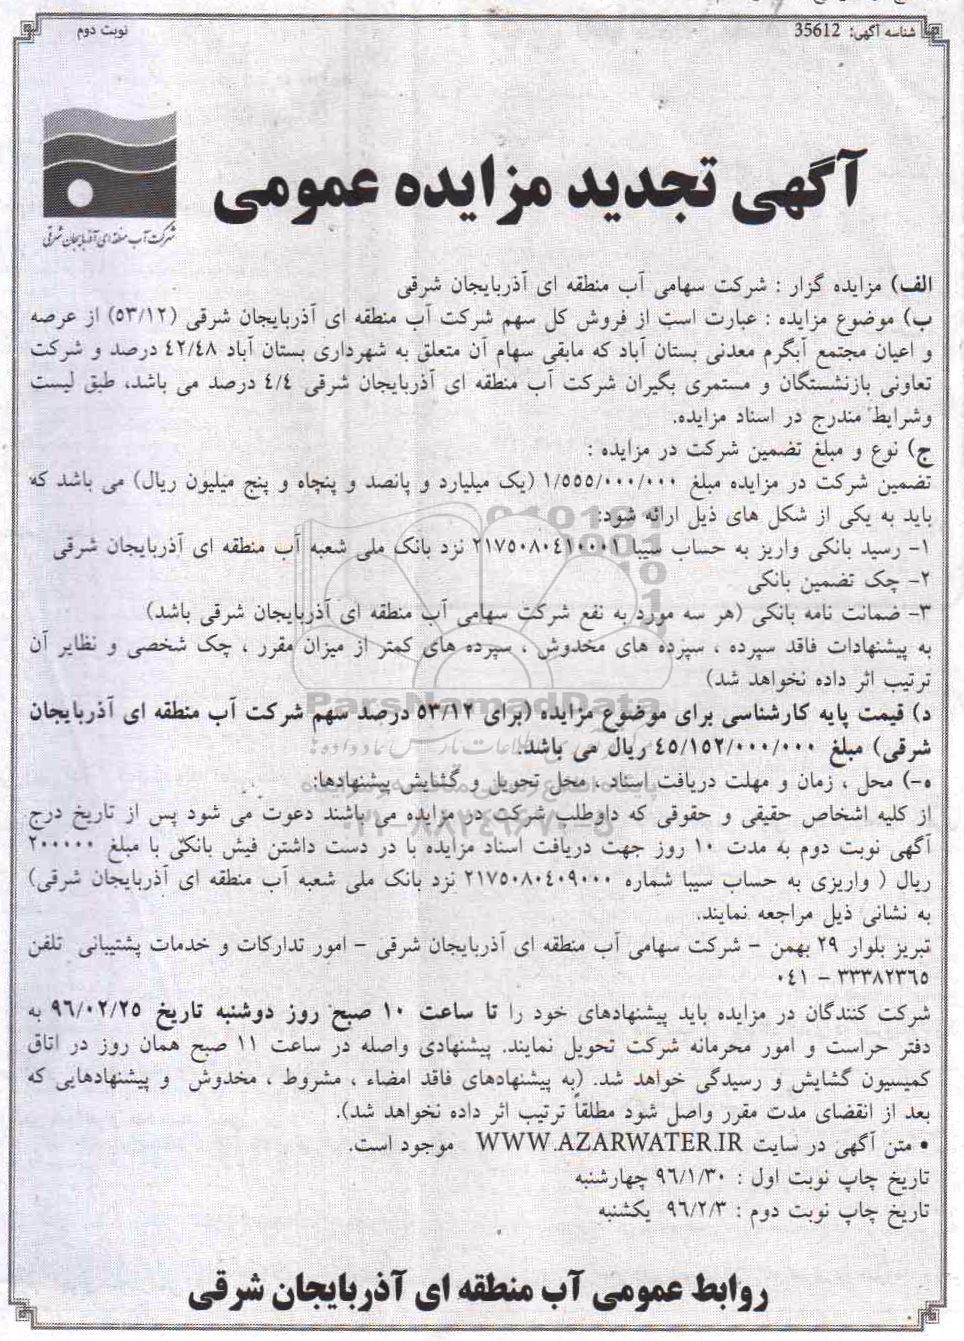 شناسه آگهی: 35612
نوبت دوم
شرکت آب منطقه ای آذربایجان شرقی
آگهی تجدید مزایده عمومی
الف) مزایده گزار : شرکت سهامی آب منطقه ای آذربایجان شرقی
ب) موضوع مزایده : عبارت است از فروش کل سهم شرکت آب منطقه ای آذربایجان شرقی (٥٣/١٢) از عرصه
و اعیان مجتمع آبگرم معدنی بستان آباد که مابقی سهام آن متعلق به شهرداری بستان آباد ٤٢/٤٨ درصد و شرکت
تعاونی بازنشستگان و مستمری بگیران شرکت آب منطقه ای آذربایجان شرقی ٤/٤ درصد می باشد، طبق لیست
وشرایط مندرج در اسناد مزایده.
ج) نوع و مبلغ تضمین شرکت در مزایده :
تضمین شرکت در مزایده مبلغ ١/٥٥٥/٠٠٠/٠٠٠ (یک میلیارد و پانصد و پنجاه و پنج میلیون ریال) می باشد که
باید به یکی از شکل های ذیل ارائه شود:
١- رسید بانکی واریز به حساب سیبا ٢١٧٥٠٨٠٤١٠٠٠٦ نزد بانک ملی شعبه آب منطقه ای آذربایجان شرقی
٢- چک تضمین بانکی
٣- ضمانت نامه بانکی (هر سه مورد به نفع شرکت سهامی آب منطقه ای آذربایجان شرقی باشد)
به پیشنهادات فاقد سپرده ، سپرده های مخدوش ، سپرده های کمتر از میزان مقرر ، چک شخصی و نظایر آن
ترتیب اثر داده نخواهد شد)
ParsNamadData
د) قیمت پایه کارشناسی برای موضوع مزایده (برای ٥٣/١٢ درصد سهم شرکت آب منطقه ای آذربایجان
شرقی) مبلغ ٤٥/١٥٢/٠٠٠/٠٠٠ ریال می باشد.
ه-) محل ، زمان و مهلت دریافت اسناد ، محل تحویل و گشایش پیشنهادها:
از کلیه اشخاص حقیقی و حقوقی که داوطلب شرکت در مزایده می باشند دعوت می شود پس از تاریخ درج
٠٢١-٨٨٣٤٩٦٧٠-٥
آگهی نوبت دوم به مدت ١٠ روز جهت دریافت اسناد مزایده با در دست داشتن فیش بانکی با مبلغ ٢٠٠٠٠٠
ریال ( واریزی به حساب سیبا شماره ٢١٧٥٠٨٠٤٠٩٠٠٠ نزد بانک ملی شعبه آب منطقه ای آذربایجان شرقی)
به نشانی ذیل مراجعه نمایند.
تبریز بلوار ٢٩ بهمن - شرکت سهامی آب منطقه ای آذربایجان شرقی - امور تدارکات و خدمات پشتیبانی تلفن
٣٣٣٨٢٣٦٥ - ٠٤١
شرکت کنندگان در مزایده باید پیشنهادهای خود را تا ساعت ١٠ صبح روز دوشنبه تاریخ ٩٦/٠٢/٢٥ به
دفتر حراست و امور محرمانه شرکت تحویل نمایند. پیشنهادی واصله در ساعت ١١ صبح همان روز در اتاق
کمیسیون گشایش و رسیدگی خواهد شد. (به پیشنهادهای فاقد امضاء ، مشروط ، مخدوش و پیشنهادهایی که
بعد از انقضای مدت مقرر واصل شود مطلقاً ترتیب اثر داده نخواهد شد).
• متن آگهی در سایت WWW.AZARWATER.IR موجود است.
تاریخ چاپ نوبت اول : ٩٦/١/٣٠ چهارشنبه
تاریخ چاپ نوبت دوم : ٩٦/٢/٣ یکشنبه
روابط عمومی آب منطقه ای آذربایجان شرقی